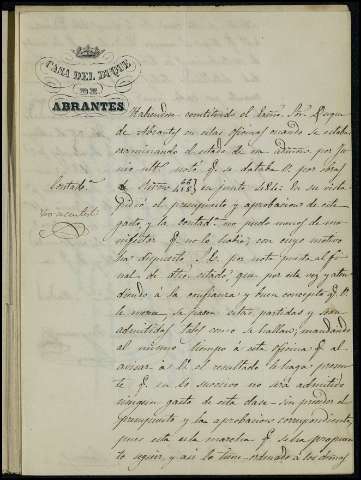 CASA DEL DUQUE
DE
ABRANTES
Habiendose constituido el Exmo. Sor. Duque
de Abrantes en estas oficinas cuando se estaba
examinando el estado de su admon. por Ju-
nio ult. notó q. se databa V. por obras
en junta 484. En su vista
pidió el presupuesto y aprobacion de este
gasto, y la contad.a no pudo menos de ma-
nifestar q. no lo habia; con cuyo motivo
ha dispuesto S.E. por nota puesta al fi-
nal de dho. estado que por esta vez y aten-
diendo à la confianza y buen concepto q. V.
le merece, se pasen estas partidas y sean
admitidas tales como se hallan; mandando
al mismo tiempo à esta oficina q. al
avisar à V. el resultado le haga presen-
te q. en lo sucesivo no será admitido
ningun gasto de esta clase sin preceder el
presupuesto y la aprobacion correspondiente,
pues esta es la marcha q. se ha propues-
to seguir, y asi lo tiene ordenado à los demas
Contad.a